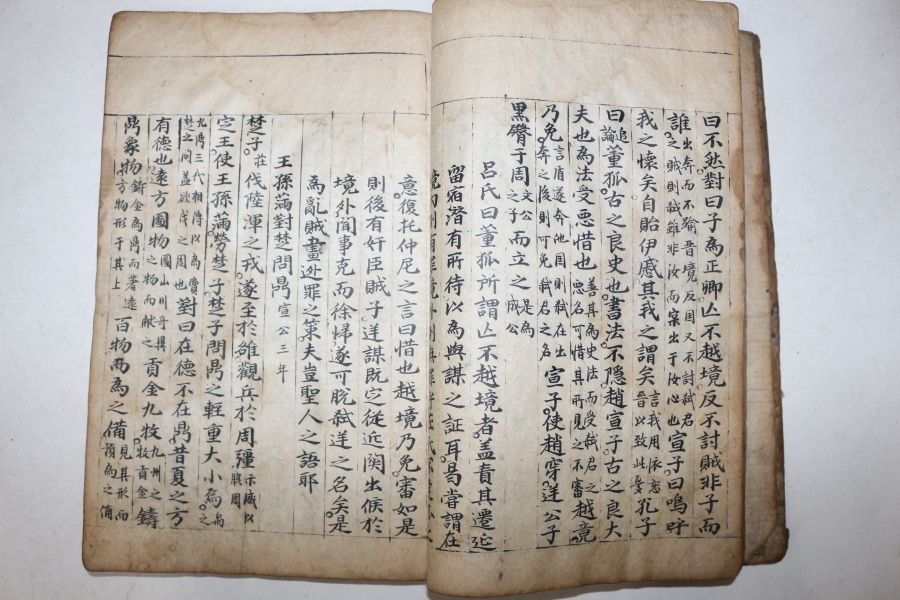 曰不然對曰子為正卿亾不越境反不討賊非子而
誰出奔而不踰晉境反国又不討弑君之賊則弑雖非汝而實出于汝心也宣子曰嗚呼
我之懷矣自貽伊慼其我之謂矣言我用懷恋晉以致此憂孔子
曰追論董狐古之良史也書法不隱趙宣子古之良大
夫也為法受惡惜也善其為史法而受弑君之惡名可惜其所見之不審越竟
乃免言盾遂奔他国則弑在出奔之後則可免弑君之名宣子使趙穿逆公子
黒臀于周文公之子而立之是為成公
呂氏曰董狐所謂亾不越境者盖責其遷延
留宿潜有所待以為與謀之証耳曷嘗謂在
意復托仲尼之言曰惜也越境乃免審如是
則後有奸臣賊子逆謀既定從近関出候於
境外聞事克而徐帰遂可脫弑逆之名矣是
為亂賊畫迯罪之策夫豈聖人之語耶
王孫滿對楚問鼎宣公三年
楚子莊伐陸渾之戎遂至於雒觀兵於周疆示威以脅周
定王使王孫滿勞楚子楚子問鼎之軽重大小焉
九鼎三代相傳以為寶楚之問盖欲伐之周也對曰在德不在鼎昔夏之方
有德也遠方圖物国山川奇異之物而献之貢金九牧九州之牧貢金鑄
鼎象物鋳金為鼎而著遠方物形于其上百物而為之備見其形而預為之備